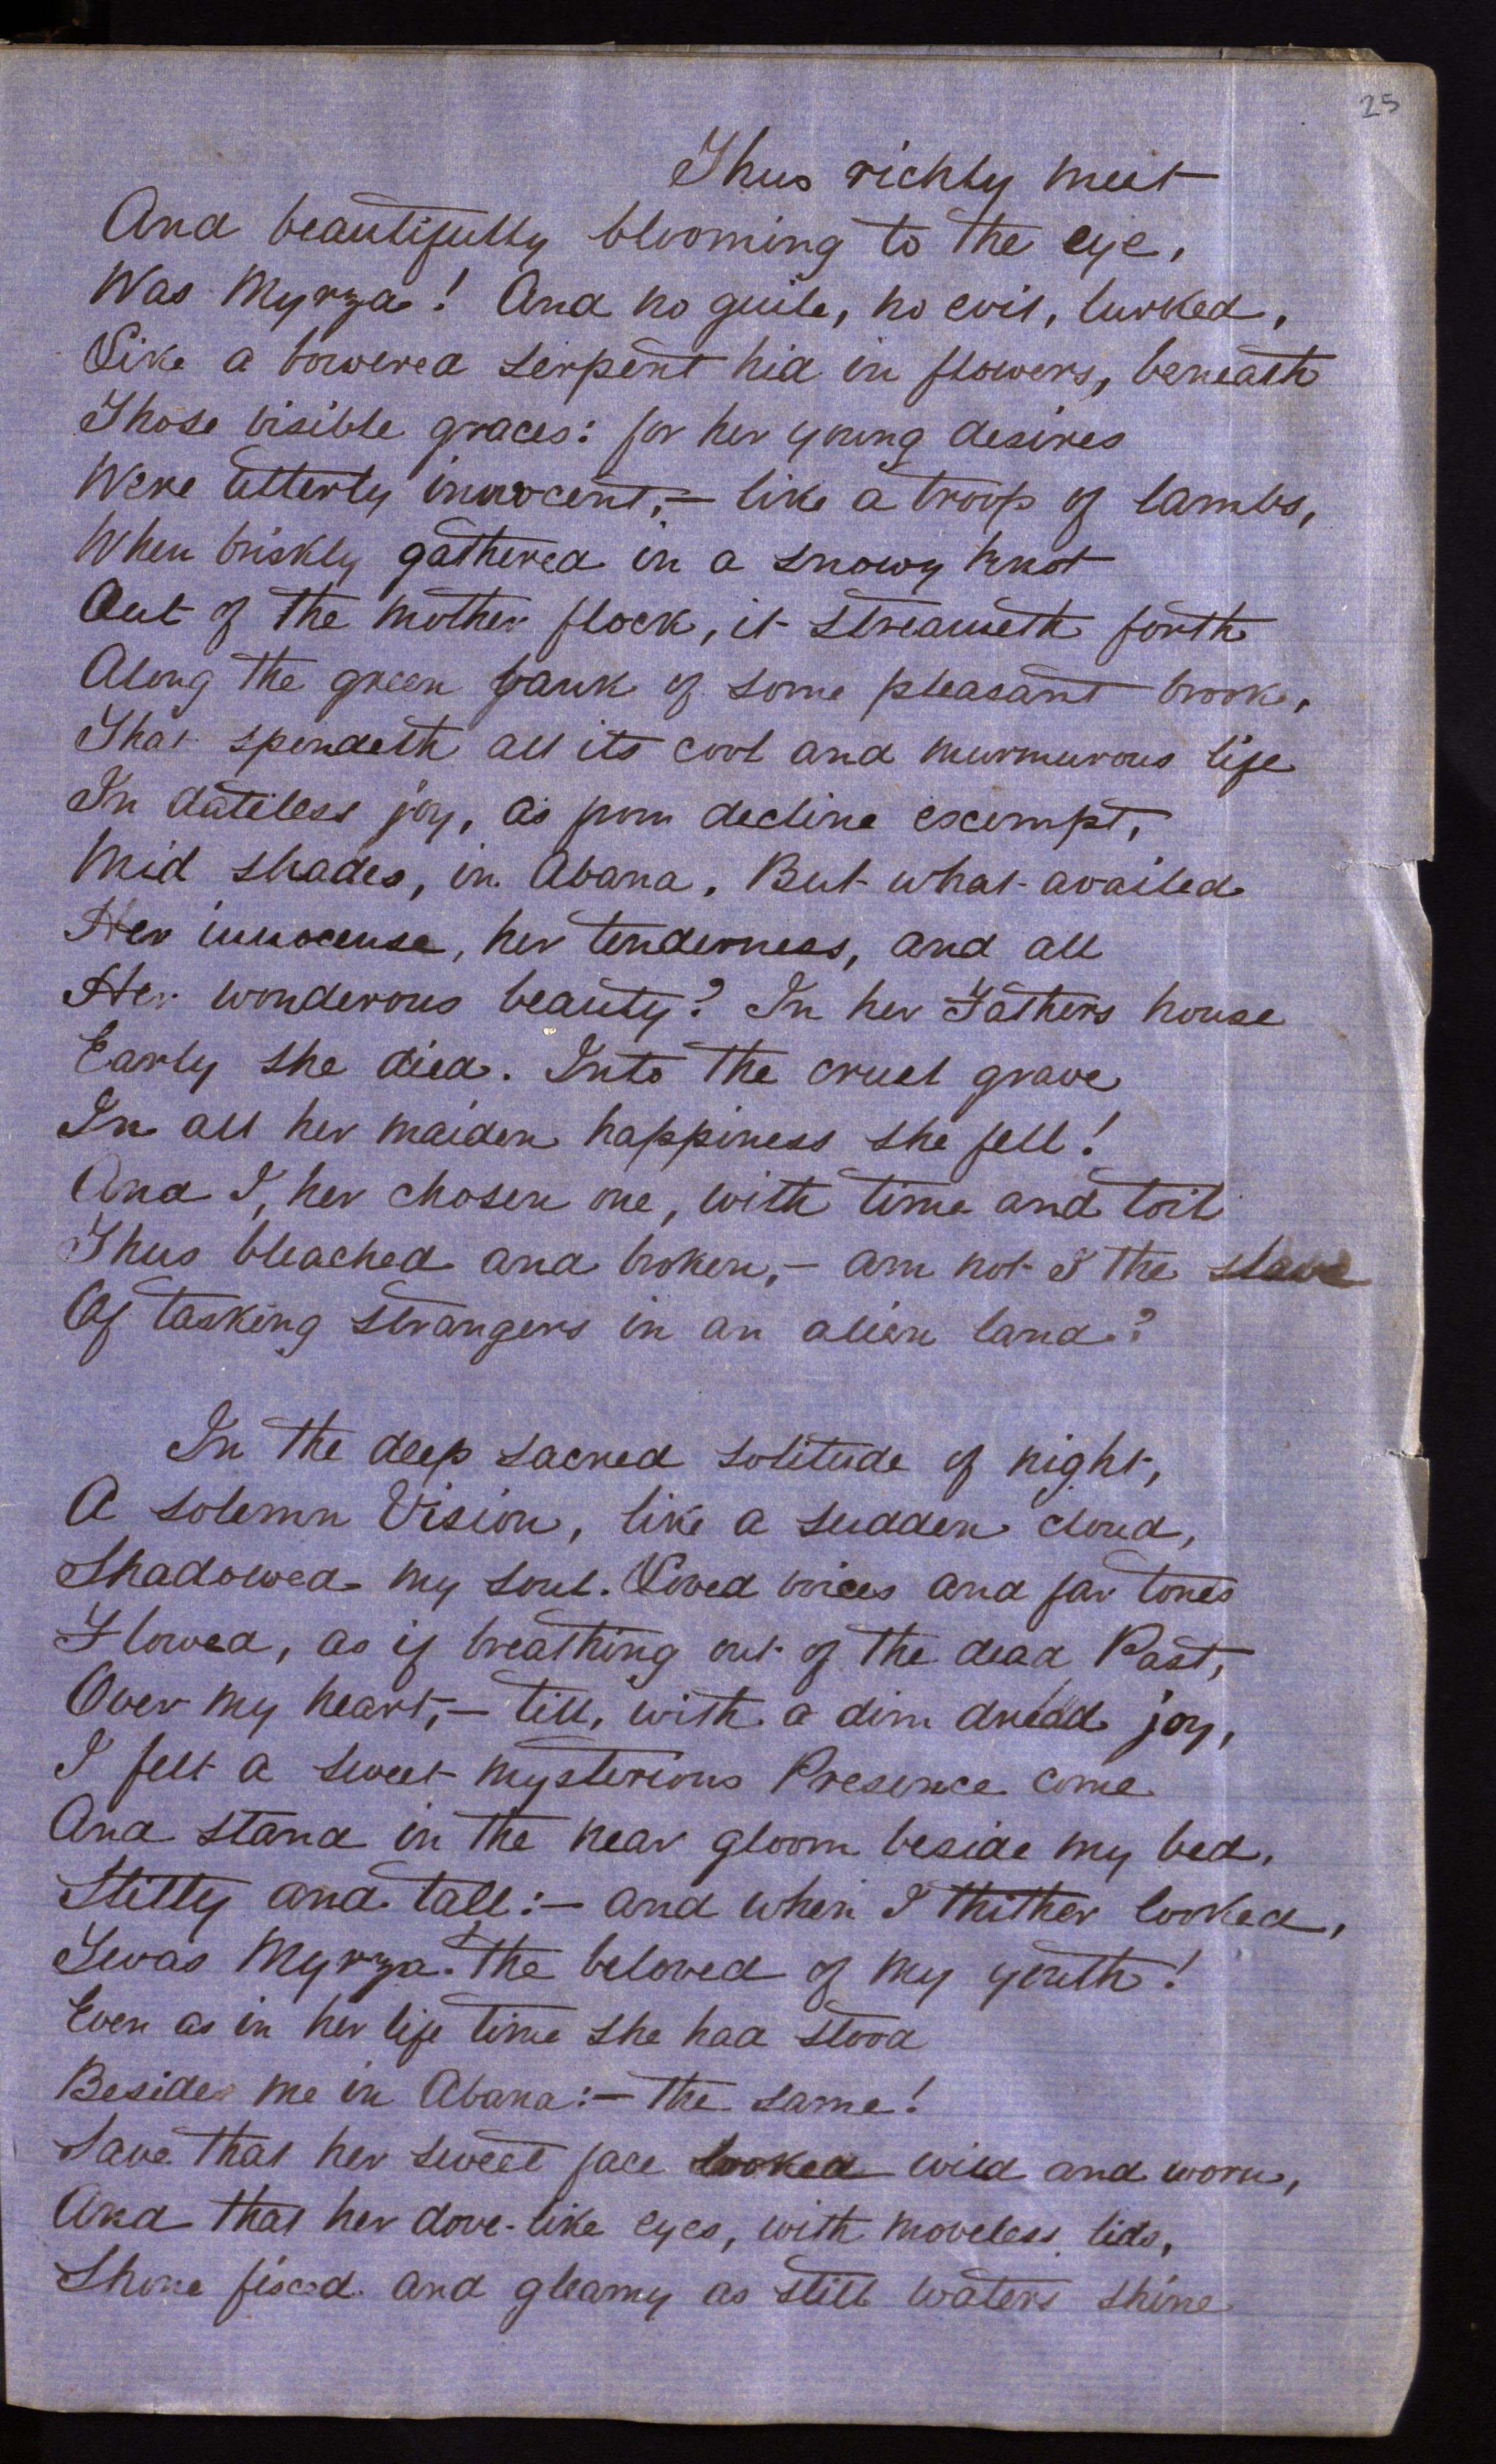 25
Thus richly meet
And beautifully blooming to the eye,
Was Myrza! And no guile, no evil, lurked,
Like a bowered serpent hid in flowers, beneath
Those visible graces: for her young desires
Were utterly innocent,— like a troop of lambs,
When briskly gathered in a snowy knot
Out of the mother flock, it streameth forth
Along the green bank of some pleasant brook,
That spendeth all its cool and murmurous life
In dateless joy, as from decline exempt,
Mid shades, in Abana. But what availed
Her innocense, her tenderness, and all
Her wonderous beauty? In her Fathers house
Early she died. Into the cruel grave
In all her maiden happiness she fell!
And I, her chosen one, with time and toil
Thus bleached and broken,— am not I the slave
Of tasking strangers in an alien land?
In the deep sacred solitude of night,
A solemn Vision, like a sudden cloud,
Shadowed my soul. Loved voices and far tones
Flowed, as if breathing out of the dead Past,
Over my heart,— till, with a dim dredd joy,
I felt a sweet mysterious Presence come
And stand in the near gloom beside my bed,
Stilly and tall:— and when I thither looked,
Twas Myrza. the beloved of my youth!
Even as in her life time she had stood
Besides me in Abana:— the same!
Save that her sweet face looked wild and worn,
And that her dove-like eyes, with moveless lids,
Shone fixed and gleamy as still waters shine